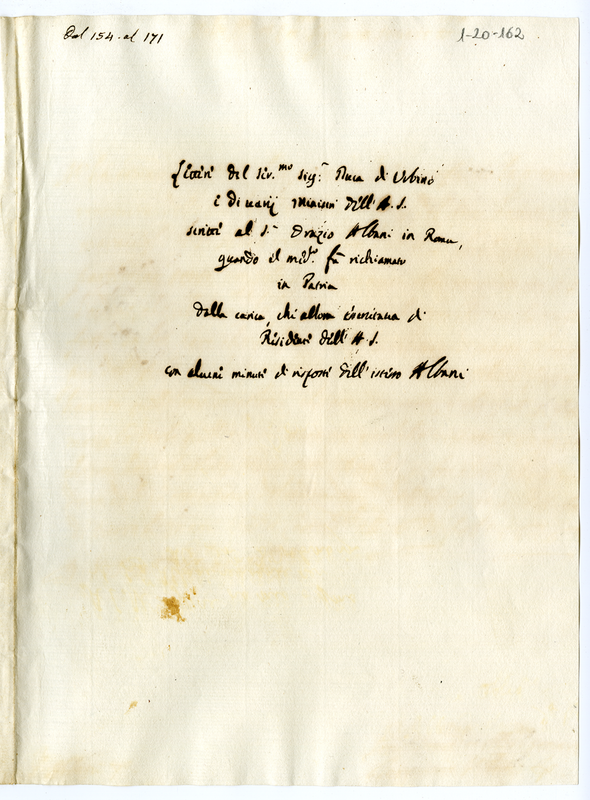 Dal 154. al 171
1-20-162
Lettere del Ser.mo Sig.r Duca di Urbino
e di varij Ministri dell'A. S.
scritte al S.r Orazio Albani in Roma,
quando il med.o fù richiamato
in Patria
dalla carica, che allora esercitava di
Residente dell'A. S.
con alcune minute di risposte dell'istesso Albani